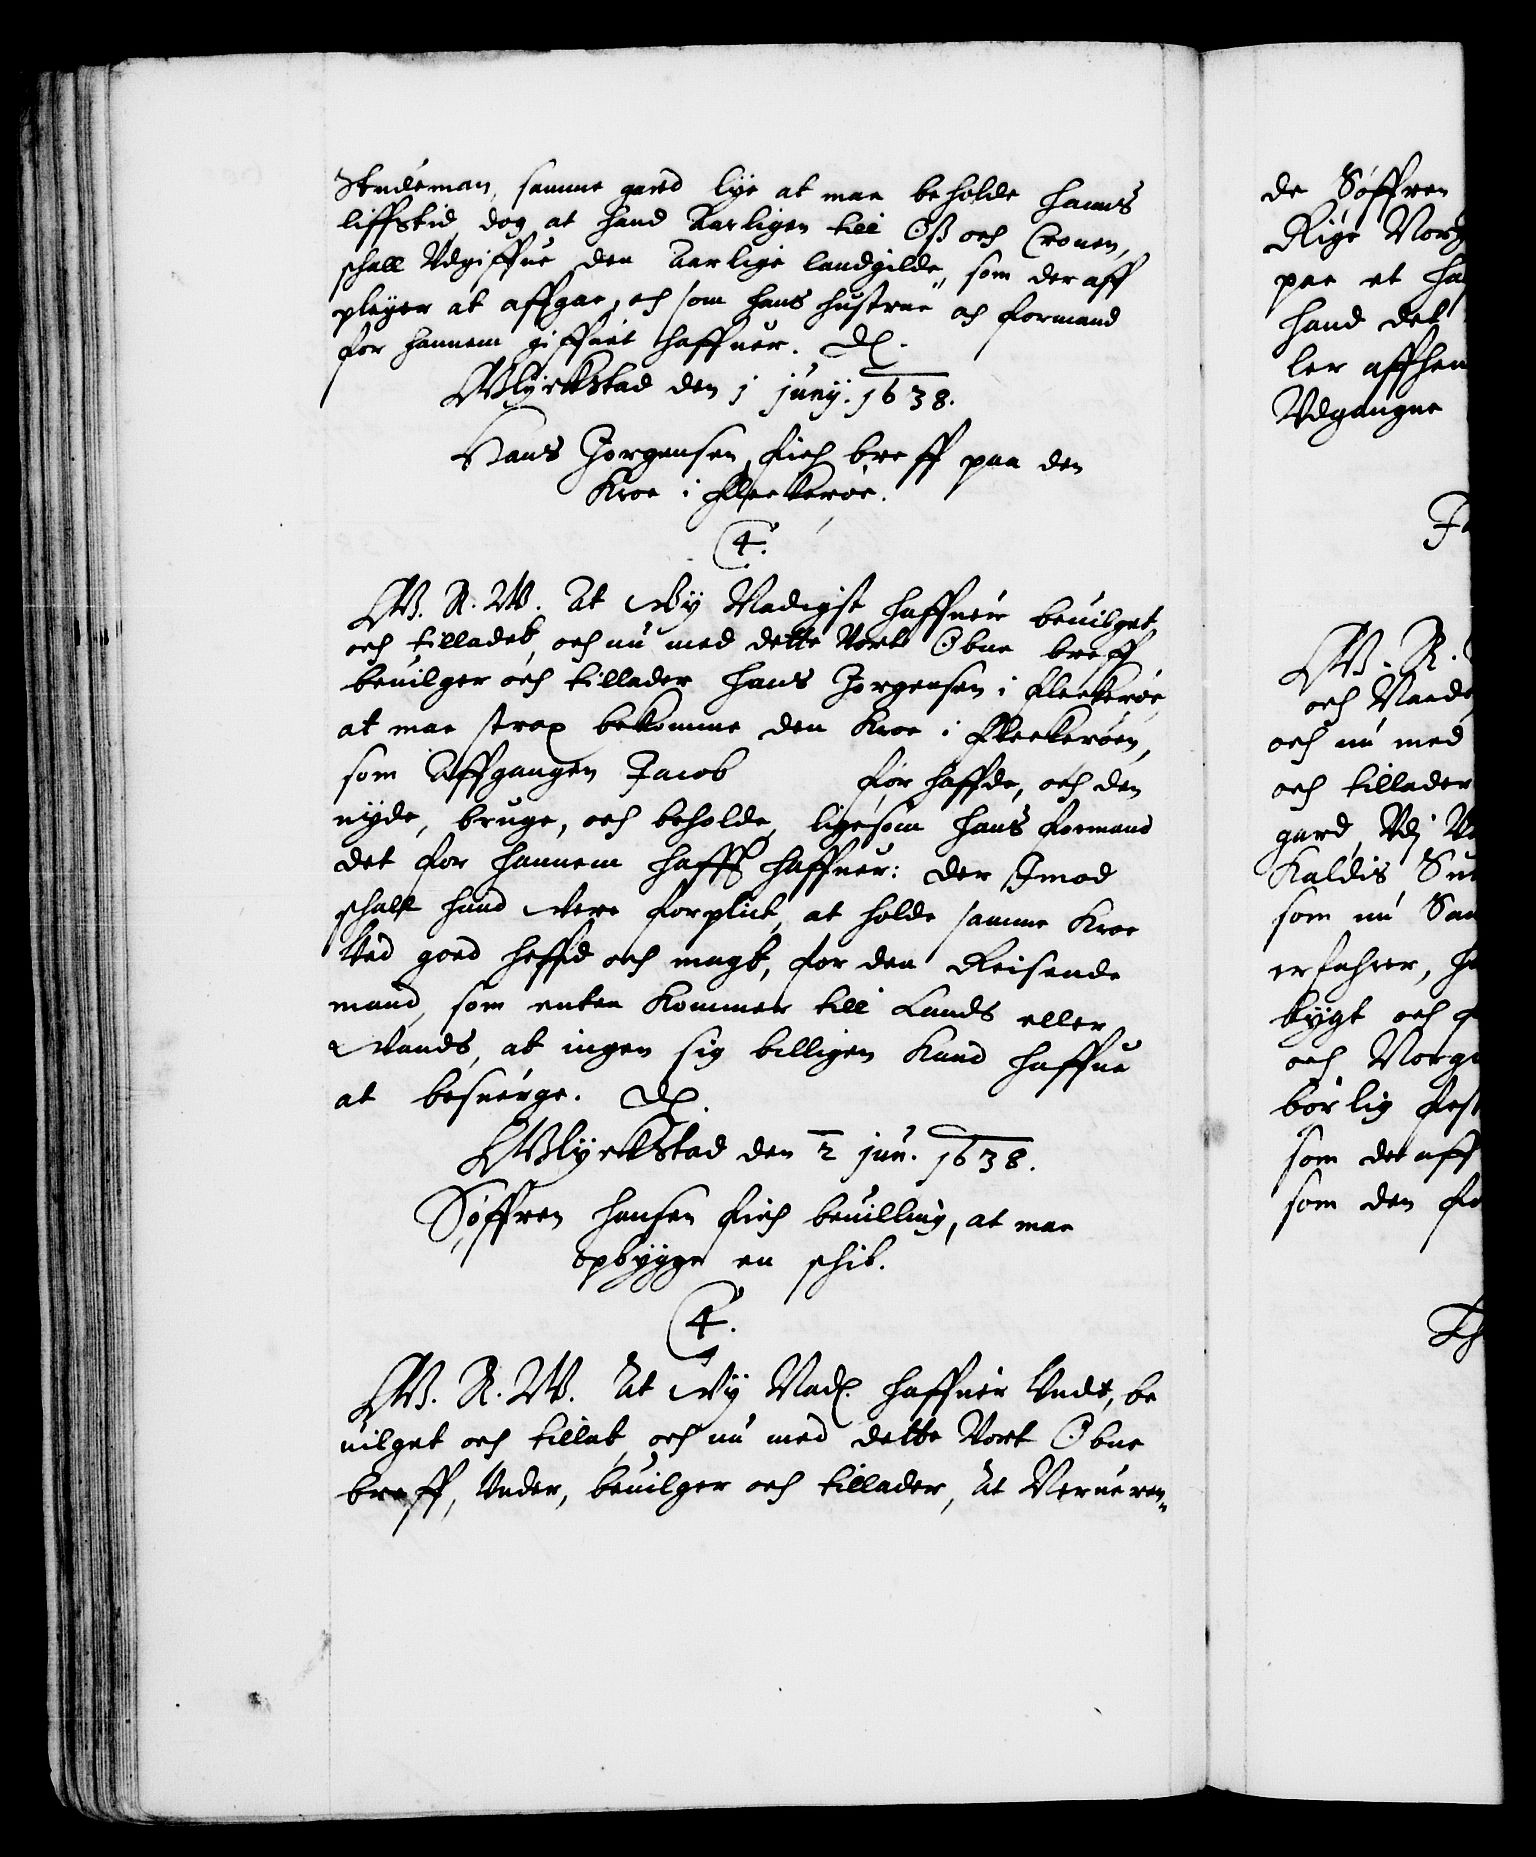 Studeman, samme gaard lye at maa beholde hanns
liffstid, dog at hand Aarligen till Oß och Cronen,
schall Udgiffue den Aarlige landgilde, som der aff
pleyer at affgae, och som hans hustrue och formand
for hannem giffuit haffuer. Dℓ.
Glyckstad den 1 junij. 1638.
Hans Jorgensen, fich breff paa den
Kroe i Fleckerøe.
C 4.
G. A. W. At Wy Naadigst haffuer beuilget
och tilladet, och nu med dette Vort Obne breff
beuilger och tillader Hans Jorgensen i Fleckerøe,
at maa strax bekomme den Kroe i Fleckerøen,
som Affgangen Jacob for haffde, och den
nyde, bruge, och beholde, ligesom hans formand
det for hannem hafft haffuer: der Jmod
schall hand vere forplict, at holde samme Kroe
ved goed heffd och magt, for den Reisende
mand, som enten kommer till Lands eller
Vands, at ingen sig billigen kand haffue
at besuerge. Dℓ.
Glyckstad den 2 jun. 1638.
Søffren Hansen fich beuilling, at maa
opbygge en schib.
C 4.
G. A. W. At Wy Naadℓ. haffuer Undt, be
uilget och tillat, och nu med dette Vort Obne
breff, Under, beuilger och tillader, at Nerueren-
de Søffren
Rige Norg
paa et ha
hand det
ler affhen
Udgangne
G. A.
och Naade
och nu med
och tillader
gaard, Udj
Kaldis
som nu
erfahrer,
bygt och
och Norge
børlig fest
som der aff
som den fo